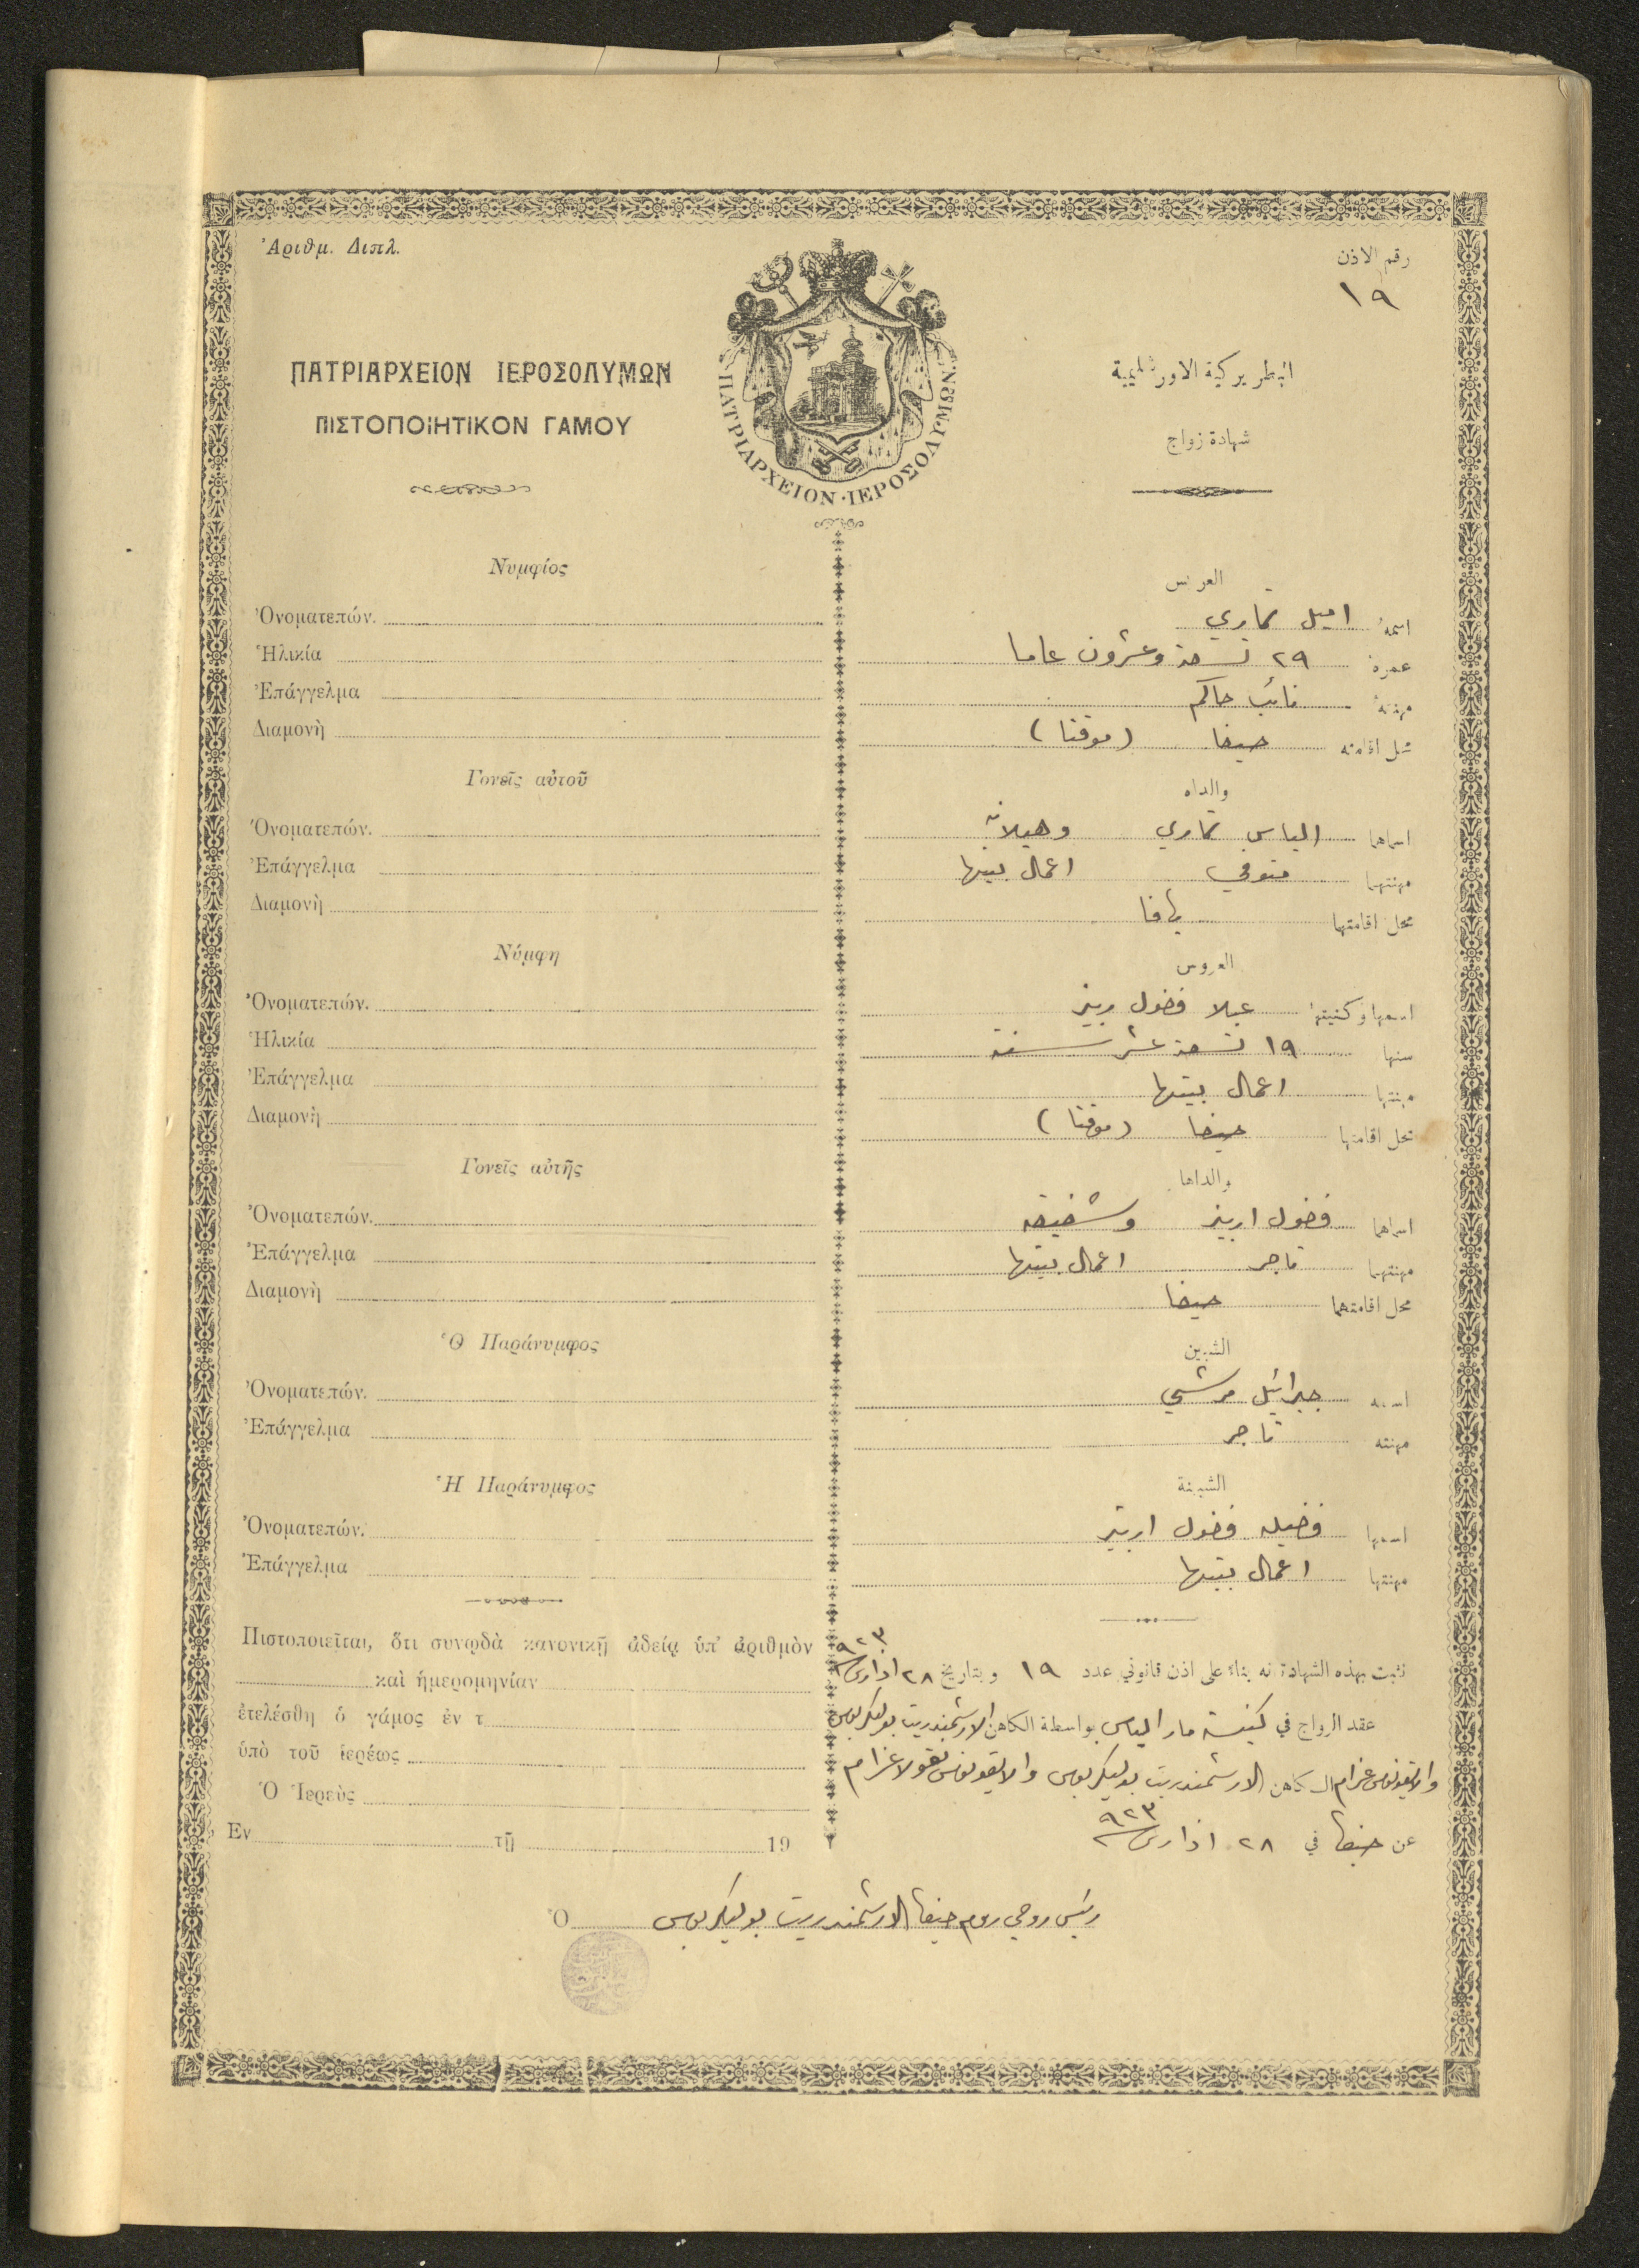 Ἀριθμ. Διπλ.
رقم الاذن
١٩
ΠΑΤΡΙΑΡΧΕΙΟΝ ΙΕΡΟΣΟΛΥΜΩΝ
ΠΙΣΤΟΠΟΙΗΤΙΚΟΝ ΓΑΜΟΥ
ΠΑΤΡΙΑΡΧΕΙΟΝ·ΙΕΡΟΣΟΛΥΜΩΝ
البطريركية الاورشليمية
شهادة زواج
Νυμφίος
العريس
Ὀνοματεπών.
اسمهُ اميل تماري
Ἡλικία
عمرهُ ٢٩ تسعة وعشرون عاما
Ἐπάγγελμα
مهنتهُ نائب حاكم
Διαμονὴ
محل اقامته حيفا (موقتا)
Γονεῖς αὐτοῦ
والداه
Ὀνοματεπών.
اسماهما الياس تماري وهيلانه
Ἐπάγγελμα
مهنتهما متوفي اعمال بيتها
Διαμονὴ
محل اقامتهما يافا
Νύμφη
العروس
Ὀνοματεπών.
اسمها وكنيتها عبلا فضول ربيز
Ἡλικία
سنها ١٩ تسعة عشر سنة
Ἐπάγγελμα
مهنتها اعمال بيتها
Διαμονὴ
محل اقامتها حيفا (موقتا)
Γονεῖς αὐτῆς
والداها
Ὀνοματεπών.
اسماهما فضول اربيز وشفيقه
Ἐπάγγελμα
مهنتهما تاجر اعمال بيتها
Διαμονὴ
محل اقامتهما حيفا
Ὁ Παράνυμφος
الشبين
Ὀνοματεπών.
اسمه جبرائيل مرشي
Ἐπάγγελμα
مهنته تاجر
Ἡ Παράνυμφος
الشبينة
Ὀνοματεπών.
اسمها فضيله فضول اربيز
Ἐπάγγελμα
مهنتها اعمال بيتها
Πιστοποιεῖται, ὅτι συνῳδὰ κανονικῇ ἀδείᾳ ὑπ' ἀριθμὸν
καὶ ἡμερομηνίαν
ἐτελέσθη ὁ γάμος ἐν τ
ὑπὸ τοῦ ἱερέως
Ὁ Ἱερεὺς
Ἐν τῇ 19
نثبت بهذه الشهادة انه بناء على اذن قانوني عدد ١٩ وبتاريخ ٢٨ اذار سنة ٩٢٣
عقد الزواج في كنيسة مار الياس بواسطة الكاهن الارشمندريت بوليكربوس
والايقونوس عزام الكاهن الارشمندريت بوليكربوس والايقونوس نقولا عزام
عن حيفا في ٢٨ اذار سنة ٩٢٣
Ὁ رئيس روحي روم حيفا الارشمندريت بوليكربوس